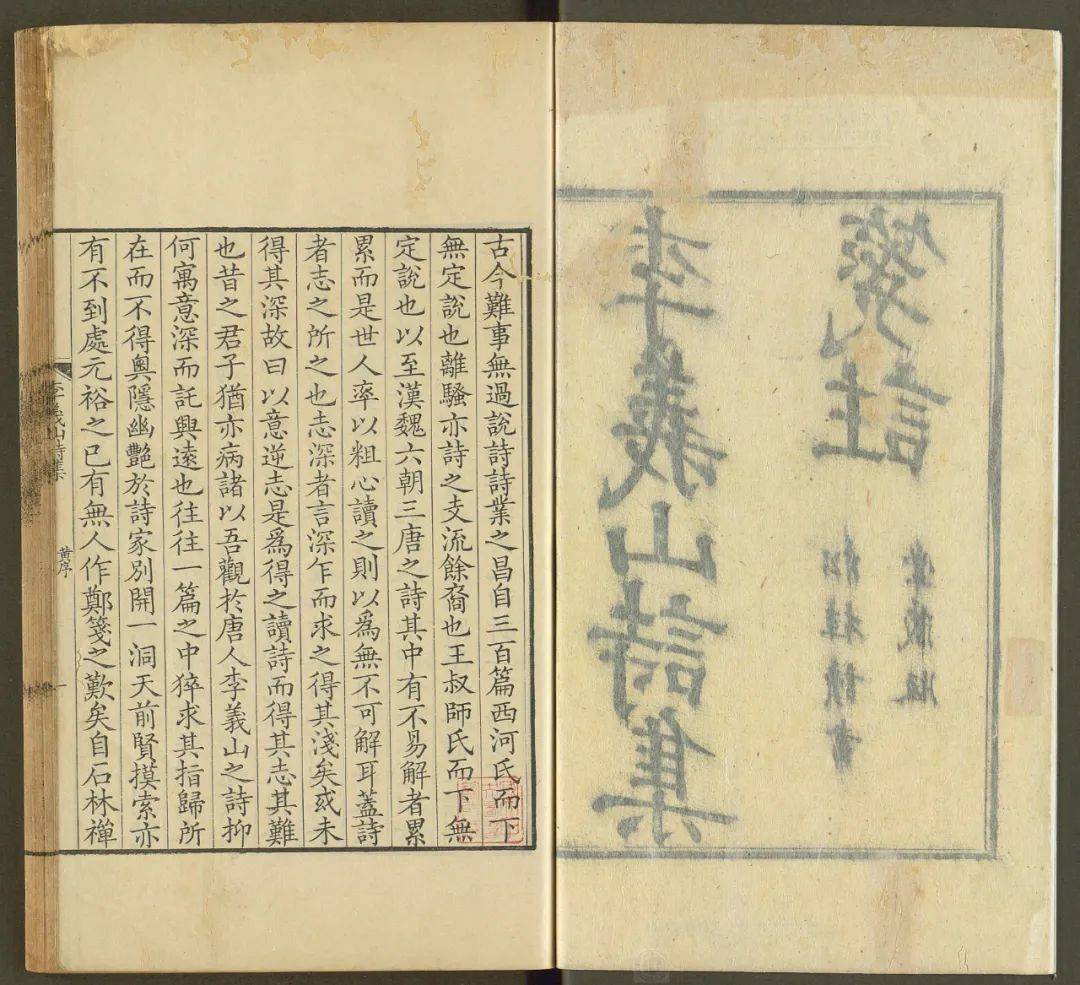 李義山詩集
箋註
松桂讀書
堂藏版
古今難事無過說詩詩業之昌自三百篇西河氏而下
無定說也離騷亦詩之支流餘裔也王叔師氏而下無
定說也以至漢魏六朝三唐之詩其中有不易解者累
累而是世人率以粗心讀之則以為無不可解耳蓋詩
者志之所之也志深者言深乍而求之得其淺矣或未
得其深故曰以意逆志是爲得之讀詩而得其志其難
也昔之君子猶亦病諸以吾觀於唐人李義山之詩抑
何寓意深而託興遠也往往一篇之中猝求其指歸所
在而不得奧隱幽艷於詩家別開一洞天前賢摸索亦
有不到處元裕之已有無人作鄭箋之歎矣自石林禪
李義山詩集
黄序
一